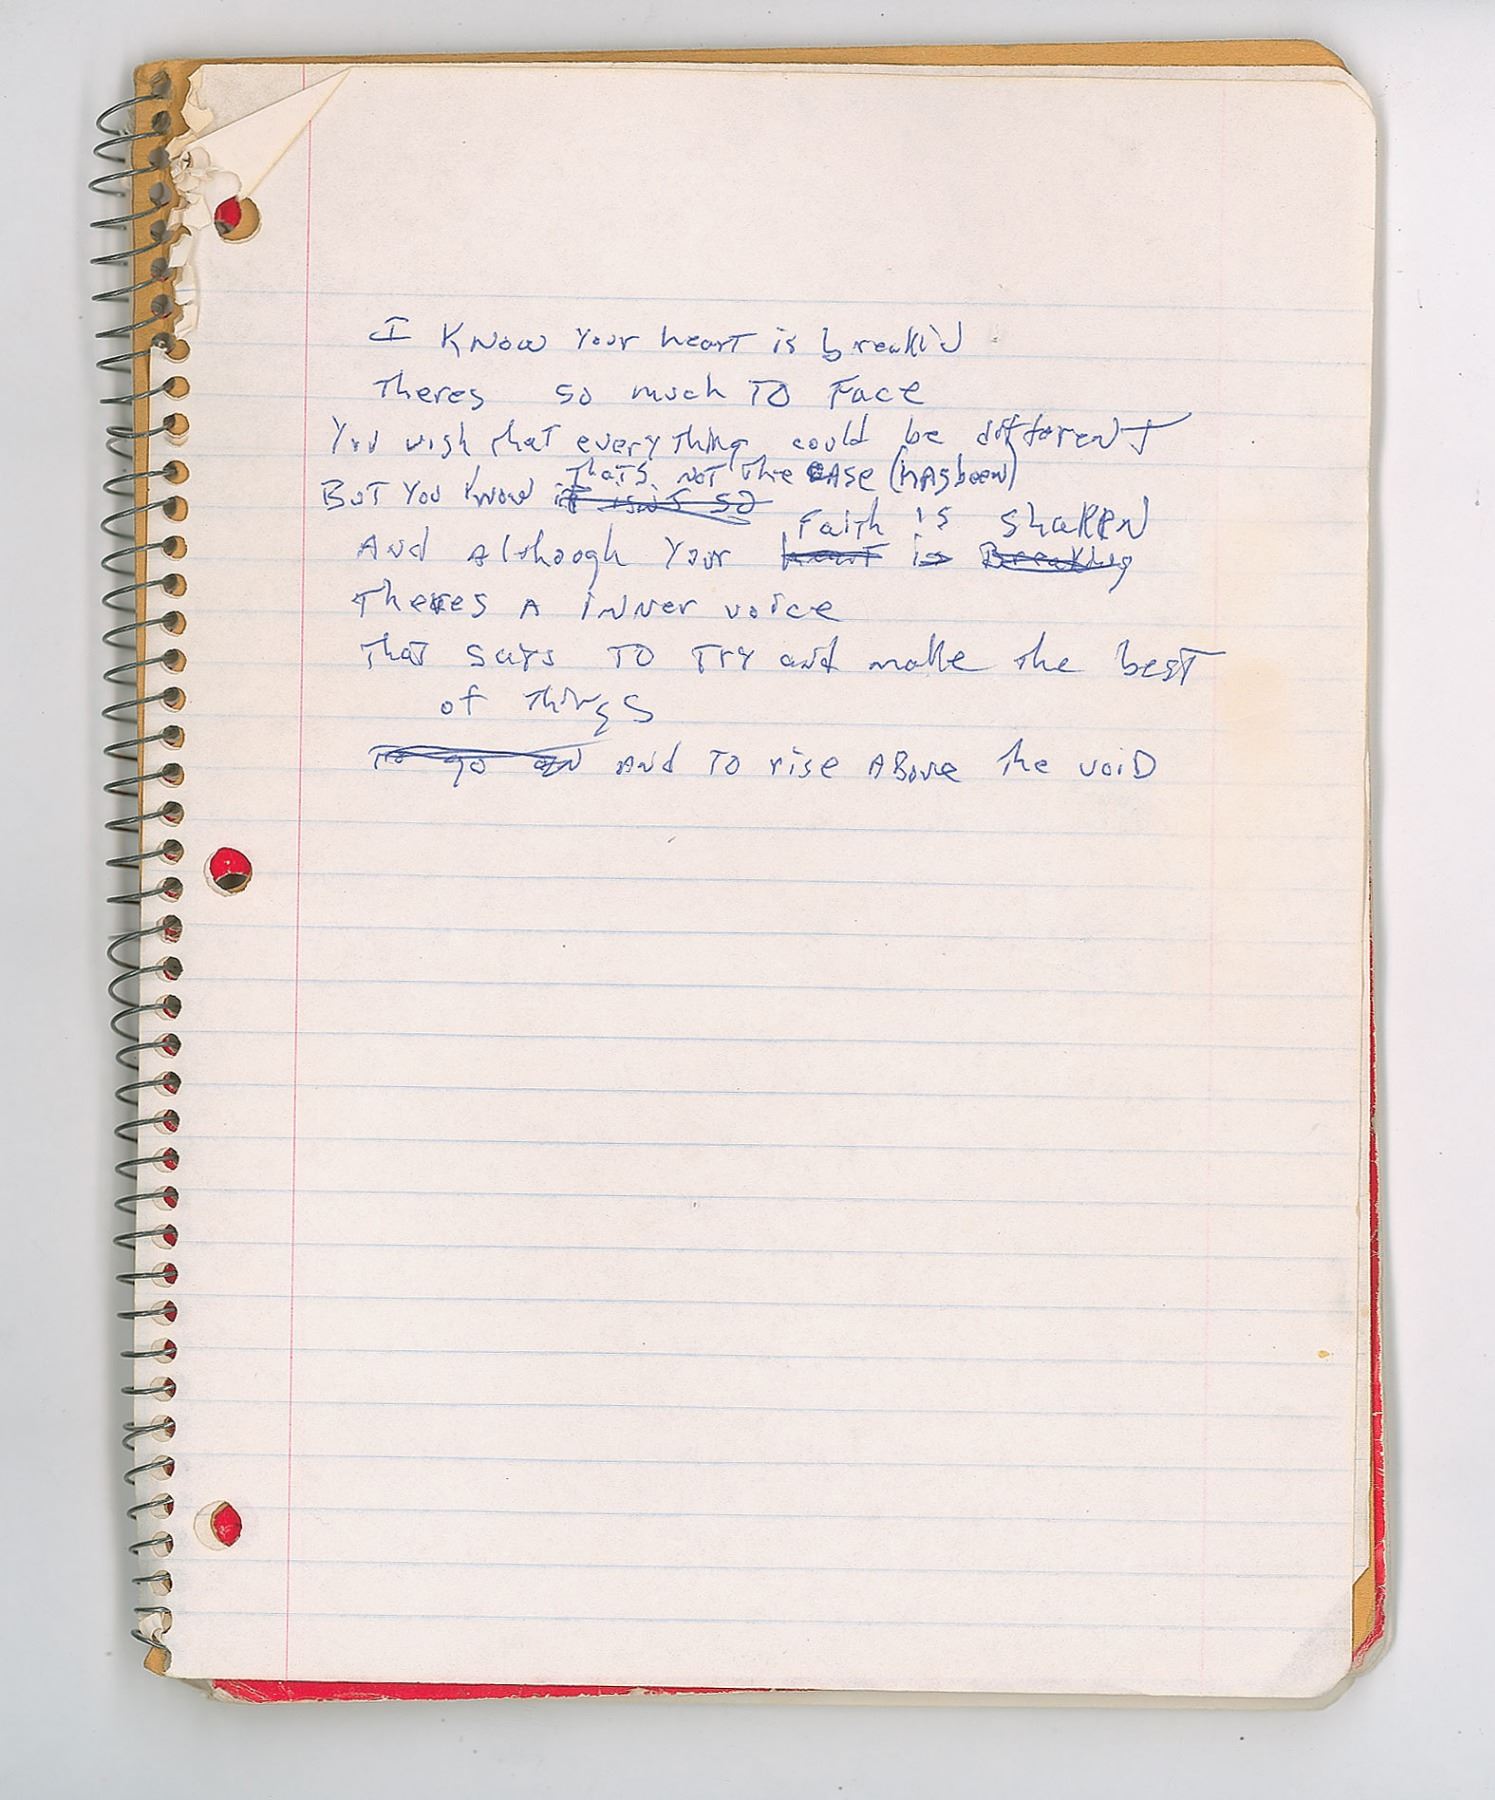 I Know Your heart is breaki'd
Theres so much TO Face
You wish that everything could be different
Thats not the case (hAsbeen)
BuT You Know it isn't so
Faith is ShakeN
And Although Your heart is Breaking
Theres A iNNer voice
ThaT says TO TrY and make the besT
of Things
To go on ANd TO rise ABove The voiD